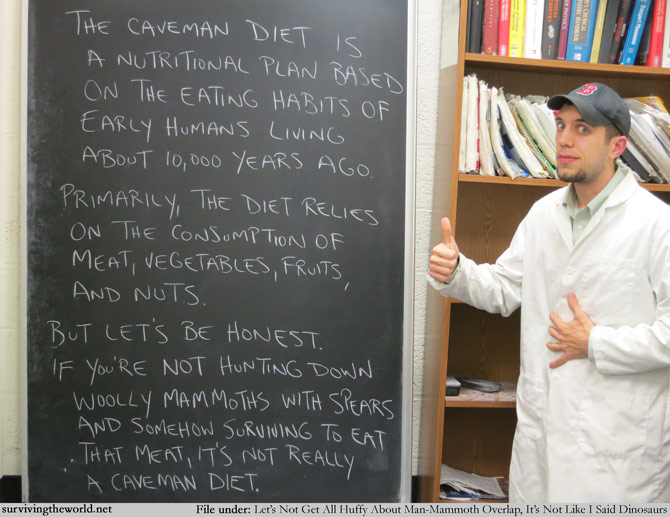 THE CAVEMAN DIET IS
A NUTRITIONAL PLAN BASED
ON THE EATING HABITS OF
EARLY HUMANS LIVING
ABOUT 10,000 YEARS AGO.
PRIMARILY, THE DIET RELIES
ON THE CONSUMPTION OF
MEAT, VEGETABLES, FRUITS,
AND NUTS.
BUT LET'S BE HONEST.
IF YOU'RE NOT HUNTING DOWN
WOOLLY MAMMOTHS WITH SPEARS
AND SOMEHOW SURVIVING TO EAT
THAT MEAT, IT'S NOT REALLY
A CAVEMAN DIET.
B
survivingtheworld.net
File under: Let's Not Get All Huffy About Man-Mammoth Overlap, It's Not Like I Said Dinosaurs